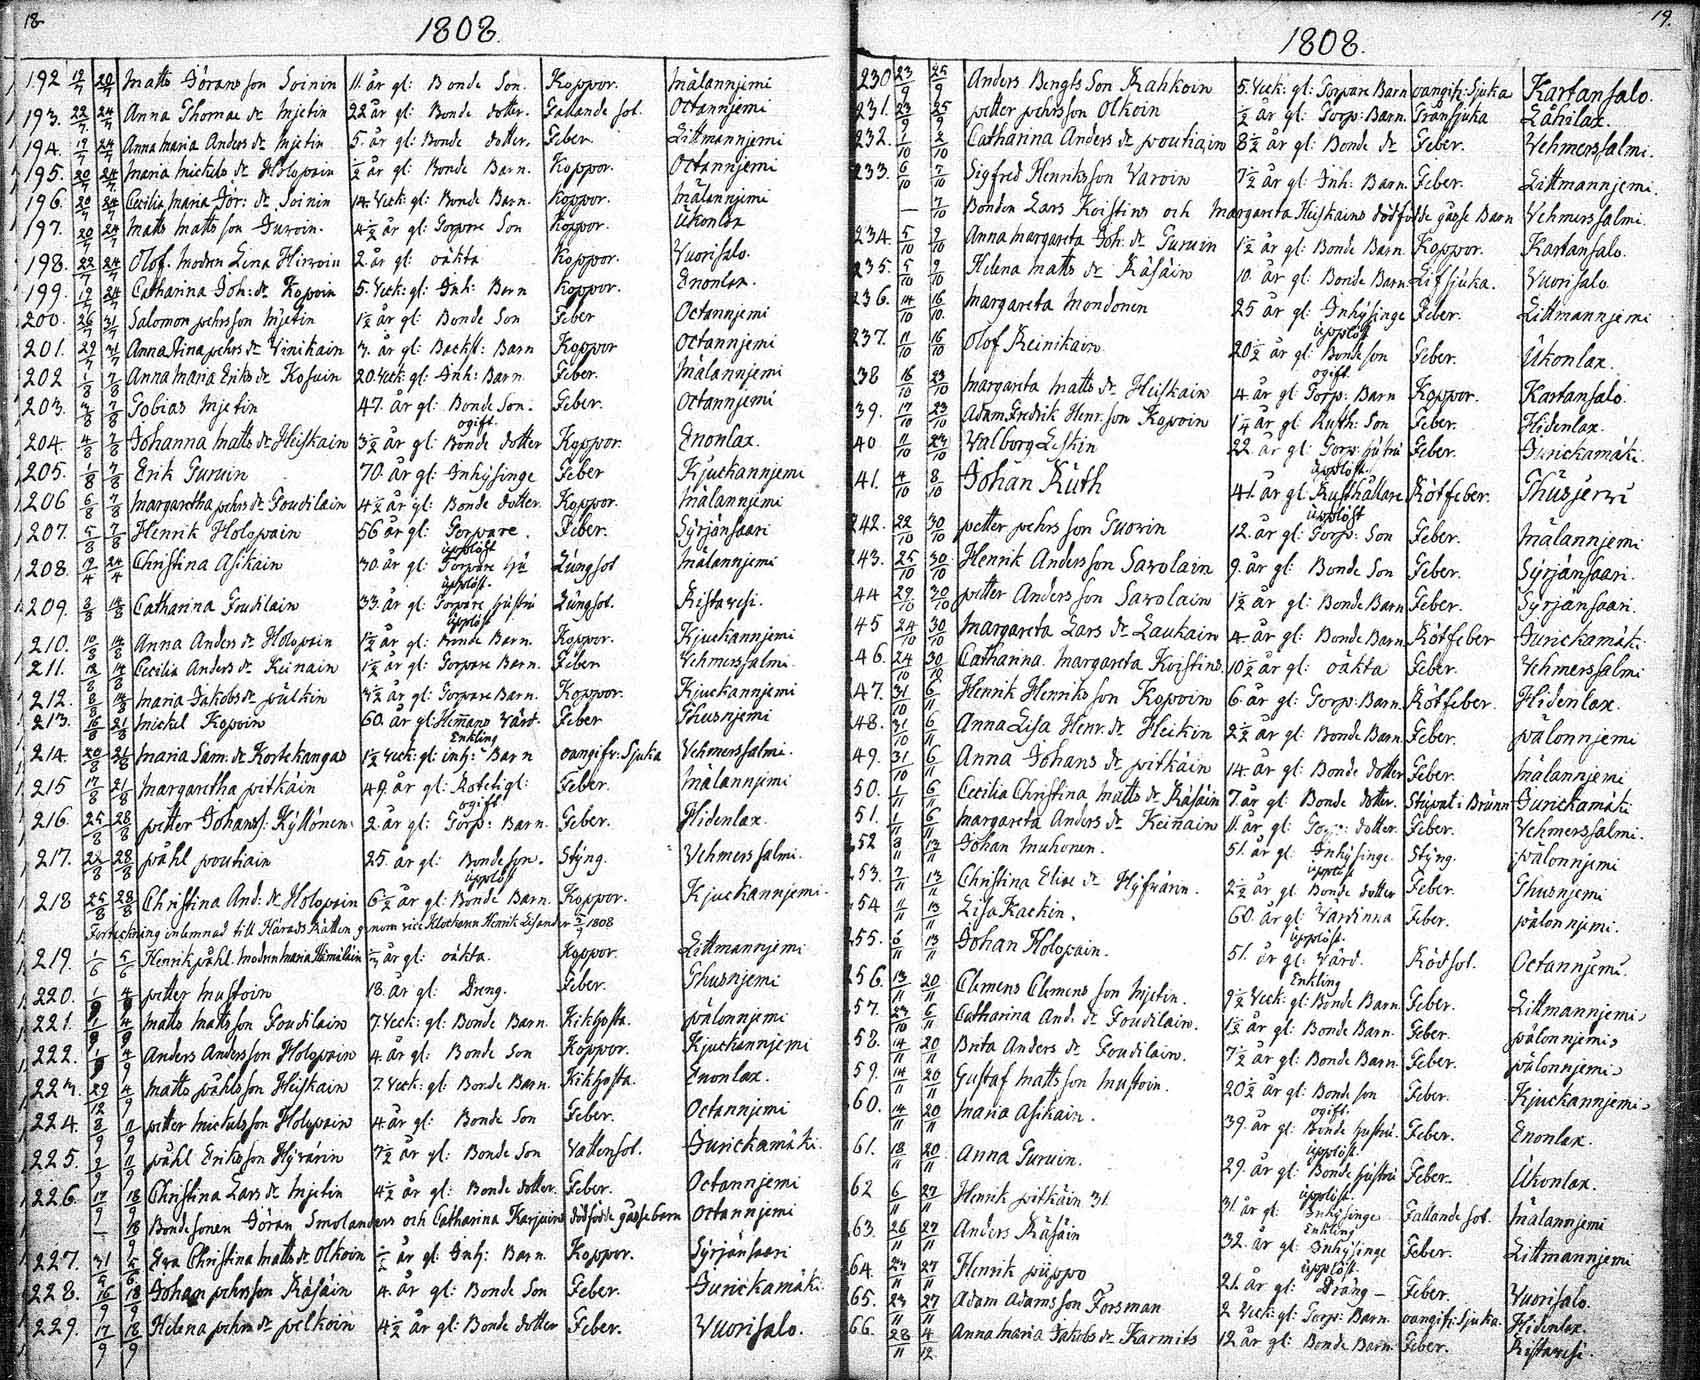 18
1808.
192 19/7 20/7 Matts Jöransson Soinin 11. år gl: Bonde Son. Koppor. Mälannjemi
193. 22/7 24/7 Anna Thomæ dr Mjetin 22 år gl: Bonde dotter. Fallande sot. Octannjemi
194. 19/7 24/7 Anna Maria Anders dr Mjetin 5. år gl: Bonde dotter. Feber. Littmannjemi
195. 20/7 24/7 Maria Mickels dr Holopain ½ år gl: Bonde Barn. Koppor. Octannjemi
196. 20/7 24/7 Cecilia Maria Jör: dr Soinin 14. Veck: gl: Bonde Barn. Koppor. Mälannjemi
197. 20/7 24/7 Matts Mattsson Turoin. 4½ år gl: Torpare Son Koppor. Ukonlax
198. 22/7 24/7 Olof. Modren Lena Hirvoin 2. år gl: oäkta Koppor. Vuorisalo.
199. 19/7 24/7 Catharina Joh: dr Kopoin 5. Veck: gl: Inh: Barn Koppor. Enonlax.
200. 26/7 31/7 Salomon pehrsson Mjetin 1½ år gl: Bonde Son Feber Octannjemi
201. 29/7 31/7 Anna Stina pehrs dr Vinikain 3. år gl: Backst: Barn Koppor Octannjemi
202 1/8 7/8 Anna Maria Eriks dr Kosuin 20 Veck: gl: Inh: Barn Feber. Mälannjemi
203. 3/8 7/8 Tobias Mjetin 47. år gl: Bonde Son. ogift. Feber. Octannjemi
204. 4/8 7/8 Johanna Matts dr Heiskain 3½ år gl: Bonde dotter Koppor. Enonlax.
205. 1/8 7/8 Erik Turuin 70. år gl: Inhysinge Feber Kjuckannjemi
206 6/8 7/8 Margaretha pehrs dr Toudilain 4½ år gl: Bonde dotter. Koppor. Mälannjemi
207. 5/8 7/8 Henrik Holopain 56 år gl: Torpare. upplöst Feber. Syrjänsaari
208. 19/4 24/4 Christina Asikain 30. år gl: Torpare hu upplöst. Lungsot Mälannjemi
209. 8/8 14/8 Catharina Toudilain 33. år gl: Torpare hustru upplöst Lungsot. Ristavesi.
210. 10/8 14/8 Anna Anders dr Holopain 1½ år gl: Bonde Barn. Koppor. Kjuckannjemi
211. 12/8 14/8 Cecilia Anders dr Keinain 1½ år gl: Torpare Barn. Feber Vehmerssalmi.
212. 8/8 14/8 Maria Jakobs dr pulkin 3½ år gl: Torpare Barn. Koppor. Kjuckannjemi
213. 16/8 21/8 Mickel Kopoin 60. år gl: Hemans Värd. Enkling Feber Thusnjemi
214. 20/8 21/8 Maria Sam: dr Kortekangas 1½ Veck: gl: inh: Barn oangifv: Sjuka Vehmerssalmi.
215 17/8 21/8 Margaretha pitkäin 49. år gl: Rotetigl: ogift Feber. Mälannjemi
216. 25/8 28/8 petter Johans: Kyllönen: 2. år gl: Torp: Barn. Feber. Hidenlax.
217. 22/8 28/8 påhl poutiain 25. år gl: Bondeson. upplöst Styng. Vehmerssalmi.
218 25/8 28/8 Christina And: dr Holopain 6½ år gl: Bonde Barn. Koppor. Kjuckannjemi.
Förteckning inlemnad till Härads Rätten genom vice Klockaren Henrik Lisander 1808
219. 1/6 5/6 Henrik påhl. Modren Maria Hämäläin år gl: oäkta. Koppor. Littmannjemi
220. 1/9 4/9 petter Mustoin 18. år gl: Dreng. Feber. Thusnjemi
221. 1/9 4/9 Matts Mattsson Toudilain 7. Veck: gl: Bonde Barn. Kikhosta. pälonnjemi
222. 1/9 4/9 Anders Andersson Holopain 4. år gl: Bonde Son Koppor. Kjuckannjemi
223. 29/12 4/9 Matts påhlsson Heiskain 7. Veck: gl: Bonde Barn. Kikhosta. Enonlax.
224. 8/9 11/9 petter Mickelsson Holopain 4. år gl: Bonde Son Feber. Octannjemi
225. 9/9 11/9 påhl Eriksson Hyvärin 7½ år gl: Bonde Son Vattensot. Jurickamäki.
226. 17/9 18/9 Christina Lars dr Mjetin 4½ år gl: Bonde dotter. Feber. Octannjemi
— 18/9 Bondesonen Jöran Smolanders och Catharina Karjuins dödfödde gåssebarn Octannjemi
227. Eva Christina Matts dr Olkoin ½ år gl: Inh: Barn. Koppor. Syrjänsaari
228. 16/9 18/9 Johan pehrsson Räsäin 4. år gl: Bonde Son Feber. Jurickamäki.
229. 17/9 18/9 Helena pehrs dr pelkoin 4½ år gl: Bonde dotter Feber. Vuorisalo.
19.
1808.
230 23/9 25/9 Anders Bengts Son Kahkoin 5. Veck: gl: Torpare Barn oangifv: Sjuka Kartansalo.
231. 23/9 25/9 petter pehrsson Olkoin ½ år gl: Torp: Barn. Trånsjuka Lähilax.
232. 1/10 2/10 Catharina Anders dr poutiain 8½ år gl: Bonde dr Feber. Vehmerssalmi.
233. 6/10 7/10 Sigfred Henriksson Varoin 7½ år gl: Inh: Barn. Feber. Littmannjemi.
— 7/10 Bonden Lars Koistins och Margareta Heiskains dödfödde gåsse Barn Vehmerssalmi.
234. 5/10 9/10 Anna Margareta Joh: dr Turuin 1½ år gl: Bonde Barn. Koppor. Kartansalo.
235. 5/10 9/10 Helena Matts dr Räsäin 10. år gl: Bonde Barn. Lifsjuka. Vuorisalo
236. 14/10 16/10 Margareta Mondonen 25 år gl: Inhysinge upplöst Feber. Littmannjemi
237. 11/10 16/10 Olof Reinikain 20½ år gl: Bondeson ogift. Feber. Ukonlax.
238 16/10 23/10 Margareta Matts dr Heiskain 4 år gl: Torp: Barn Koppor. Kartansalo.
39. 17/10 23/10 Adam Fredrik Henr: son Kopoin 1¼ år gl: Rusth: Son Feber. Hidenlax.
40 11/10 23/10 Valborg Leskin 22. år gl: Torp: hustru upplöst. Feber. Jurickamäki.
41. 4/10 8/10 Johan Kuth 41. år gl: Rusthållare upplöst Rötfeber. Thusjerwi
242. 22/10 30/10 petter pehrs son Tuovin 12. år gl: Torp: Son Feber. Mälannjemi
243. 25/10 30/10 Henrik Andersson Savolain 9. år gl: Bonde Son Feber. Syrjänsaari.
44 29/10 30/10 petter Andersson Savolain 1½ år gl: Bonde Barn Feber. Syrjänsaari.
45 24/10 30/10 Margareta Lars dr Laukain 4. år gl: Bonde Barn. Rötfeber Jurickamäki
46. 24/10 30/10 Catharina Margareta Koistins. 10½ år gl: oäkta Feber. Vehmerssalmi
47. 31/10 6/11 Henrik Henriksson Kopoin 6. år gl: Torp: Barn. Rötfeber. Hidenlax.
48. 31/10 6/11 Anna Lisa Henr: dr Heikin 2½ år gl: Bonde Barn. Feber. pälonnjemi
49. 31/10 6/11 Anna Johans dr pitkäin 14. år gl: Bonde dotter Feber. Mälannjemi
50. 1/11 6/11 Cecilia Christina Matts dr Räsäin 7. år gl: Bonde dotter. Stupat i Brunn Jurickamäki
51. 1/11 6/11 Margareta Anders dr Keinain 11. år gl: Torp: dotter. Feber. Vehmerssalmi.
252 8/11 13/11 Johan Muhonen. 51. år gl: Inhysinge upplöst Styng. pälonnjemi
253. 7/11 13/11 Christina Eliæ dr Hyfvärin. 2½ år gl: Bonde dotter Feber. Thusnjemi
54 11/11 13/11 Lisa Kaekin. 60. år gl: Värdinna upplöst. Feber. pälonnjemi.
255. 6/11 13/11 Johan Holopain. 51. år gl: Värd. Enkling Rödsot. Octannjemi.
256. 13/11 20/11 Clemens Clemens son Mjetin. 9½ Veck: gl: Bonde Barn. Feber. Littmannjemi
57. 23/10 6/11 Catharina And: dr Toudilain. 1½ år gl: Bonde Barn. Feber. pälonnjemi
58. 14/11 20/11 Brita Anders dr Toudilain. 7½ år gl: Bonde Barn. Feber. pälonnjemi
59. 14/11 20/11 Gustaf Mattsson Mustoin. 20½ år gl: Bonde son ogift. Feber. Kjuckannjemi
60. 14/11 20/11 Maria Asikain. 39. år gl: Bonde hustru. upplöst. Feber. Enonlax.
61. 18/11 20/11 Anna Turuin. 29. år gl: Bonde hustru upplöst. Feber. Ukonlax.
62 6/11 27/11 Henrik pitkäin 31. 31. år gl: Inhysinge Enkling Fallande sot. Mälannjemi
63. 26/11 27/11 Anders Räsäin 32. år gl: Inhysinge upplöst. Feber. Littmannjemi
64. 23/11 27/11 Henrik puppo 21. år gl: Dräng — Feber. Vuorisalo.
65. 23/11 27/11 Adam Adamsson Forsman 2 Veck: gl: Torp: Barn. oangifv: Sjuka. Hidenlax.
66. 28/11 4/12 Anna Maria Jakobs dr Karmits 12 år gl: Bonde Barn. Feber. Ristavesi.